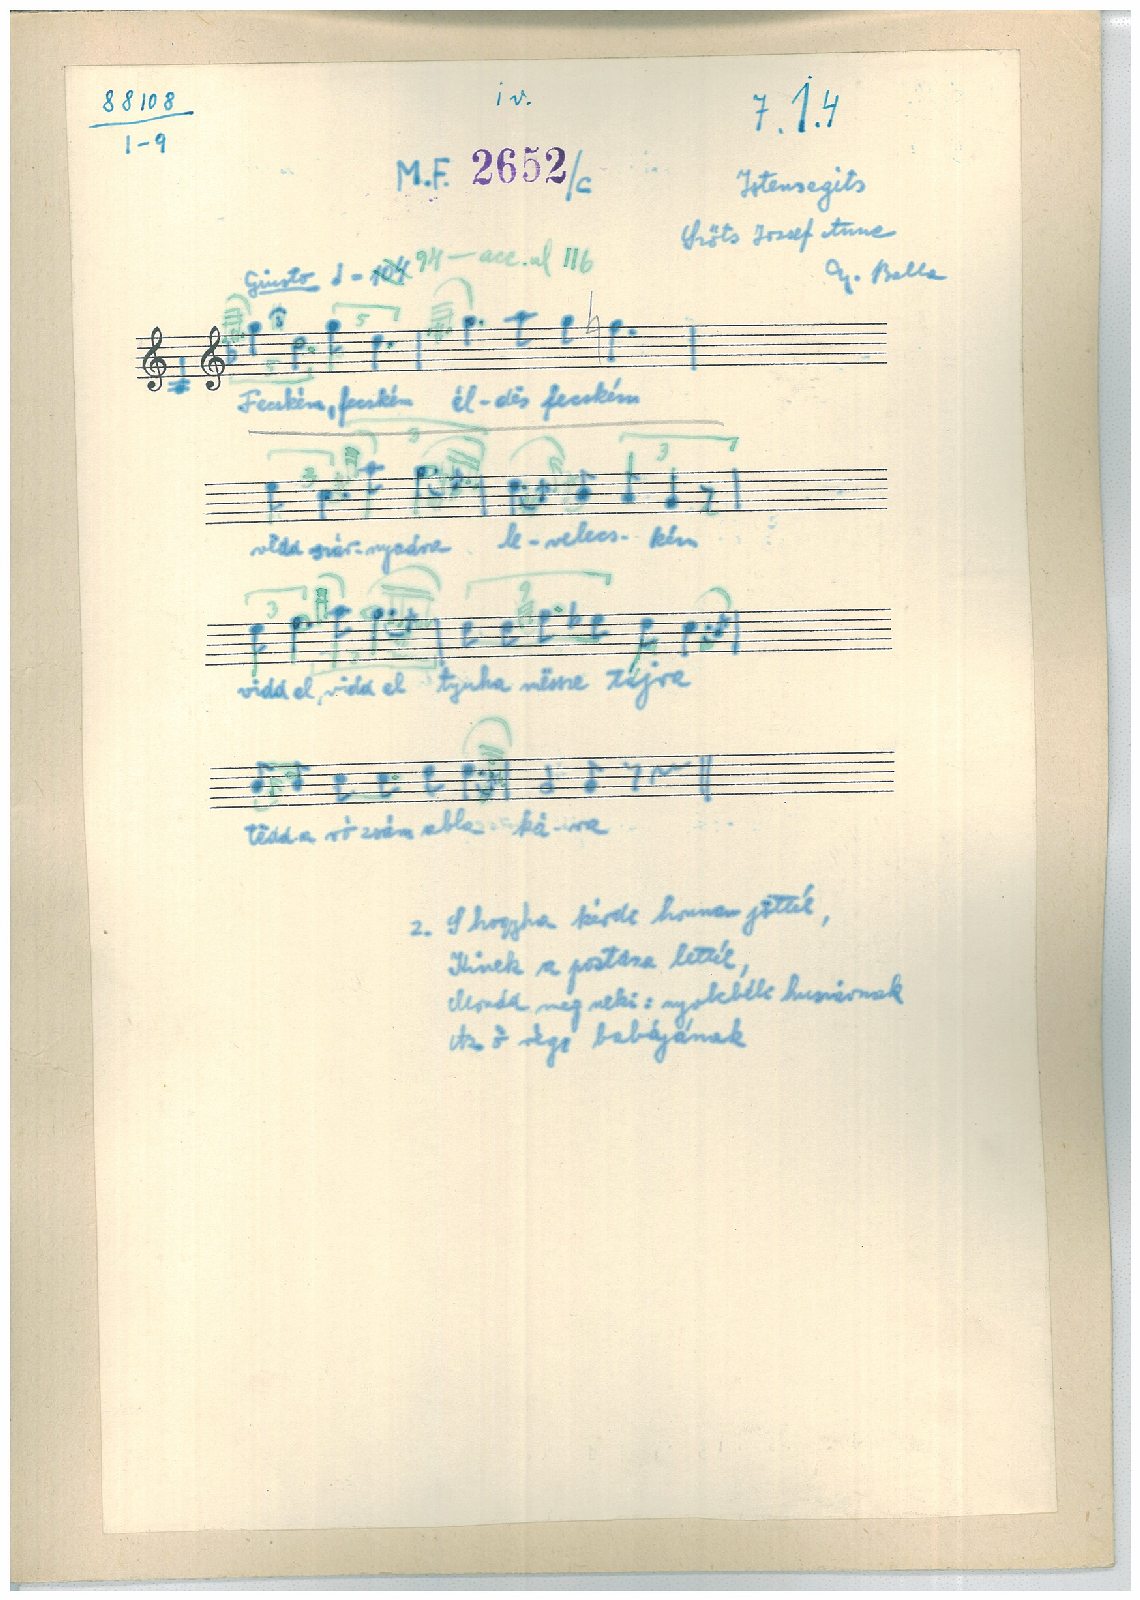 88108
1-9
iv.
7.1.4
M.F. 2652/c
Istensegits
Szőts Jozsef Anna
Gy. Balla
Giusto = 104 94 — acc. al 116
5
Fecském, fecském él-dës fecském
3 3 3
vidd szár-nyadra le-velecs-kém
3
vidd el, vidd el tyuha messze tájra
tëdd a rózsám abla-ká-ra
2. S hogyha kérde honnan jöttél,
Kinek a postása lettél,
Mondd meg neki: huszárnak
Az ő régi babájának